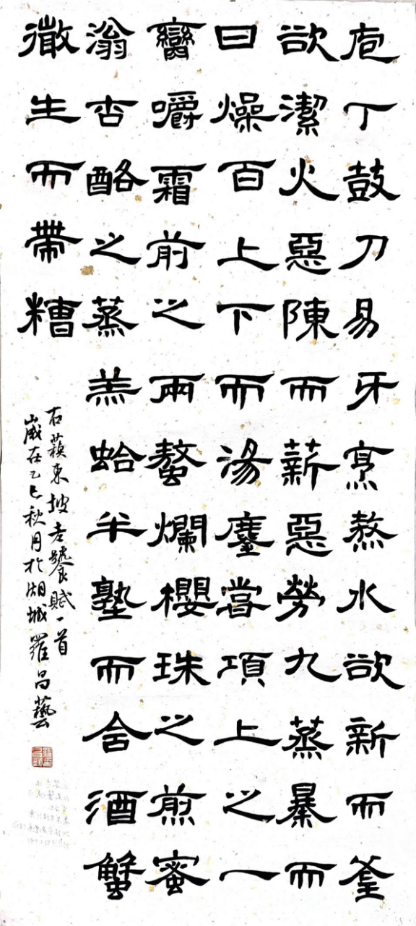 庖丁鼓刀易牙烹熬水欲新而釜
欲潔火惡陳而薪惡勞九蒸暴而
曰燥百上下而湯鏖嘗項上之一
臠嚼霜前之兩螯爛櫻珠之煎蜜
滃杏酪之蒸羔蛤半熟而含酒蟹
微生而帶糟
右蘇東坡老饕賦一首
歲在乙巳秋月於湖城羅昌藝